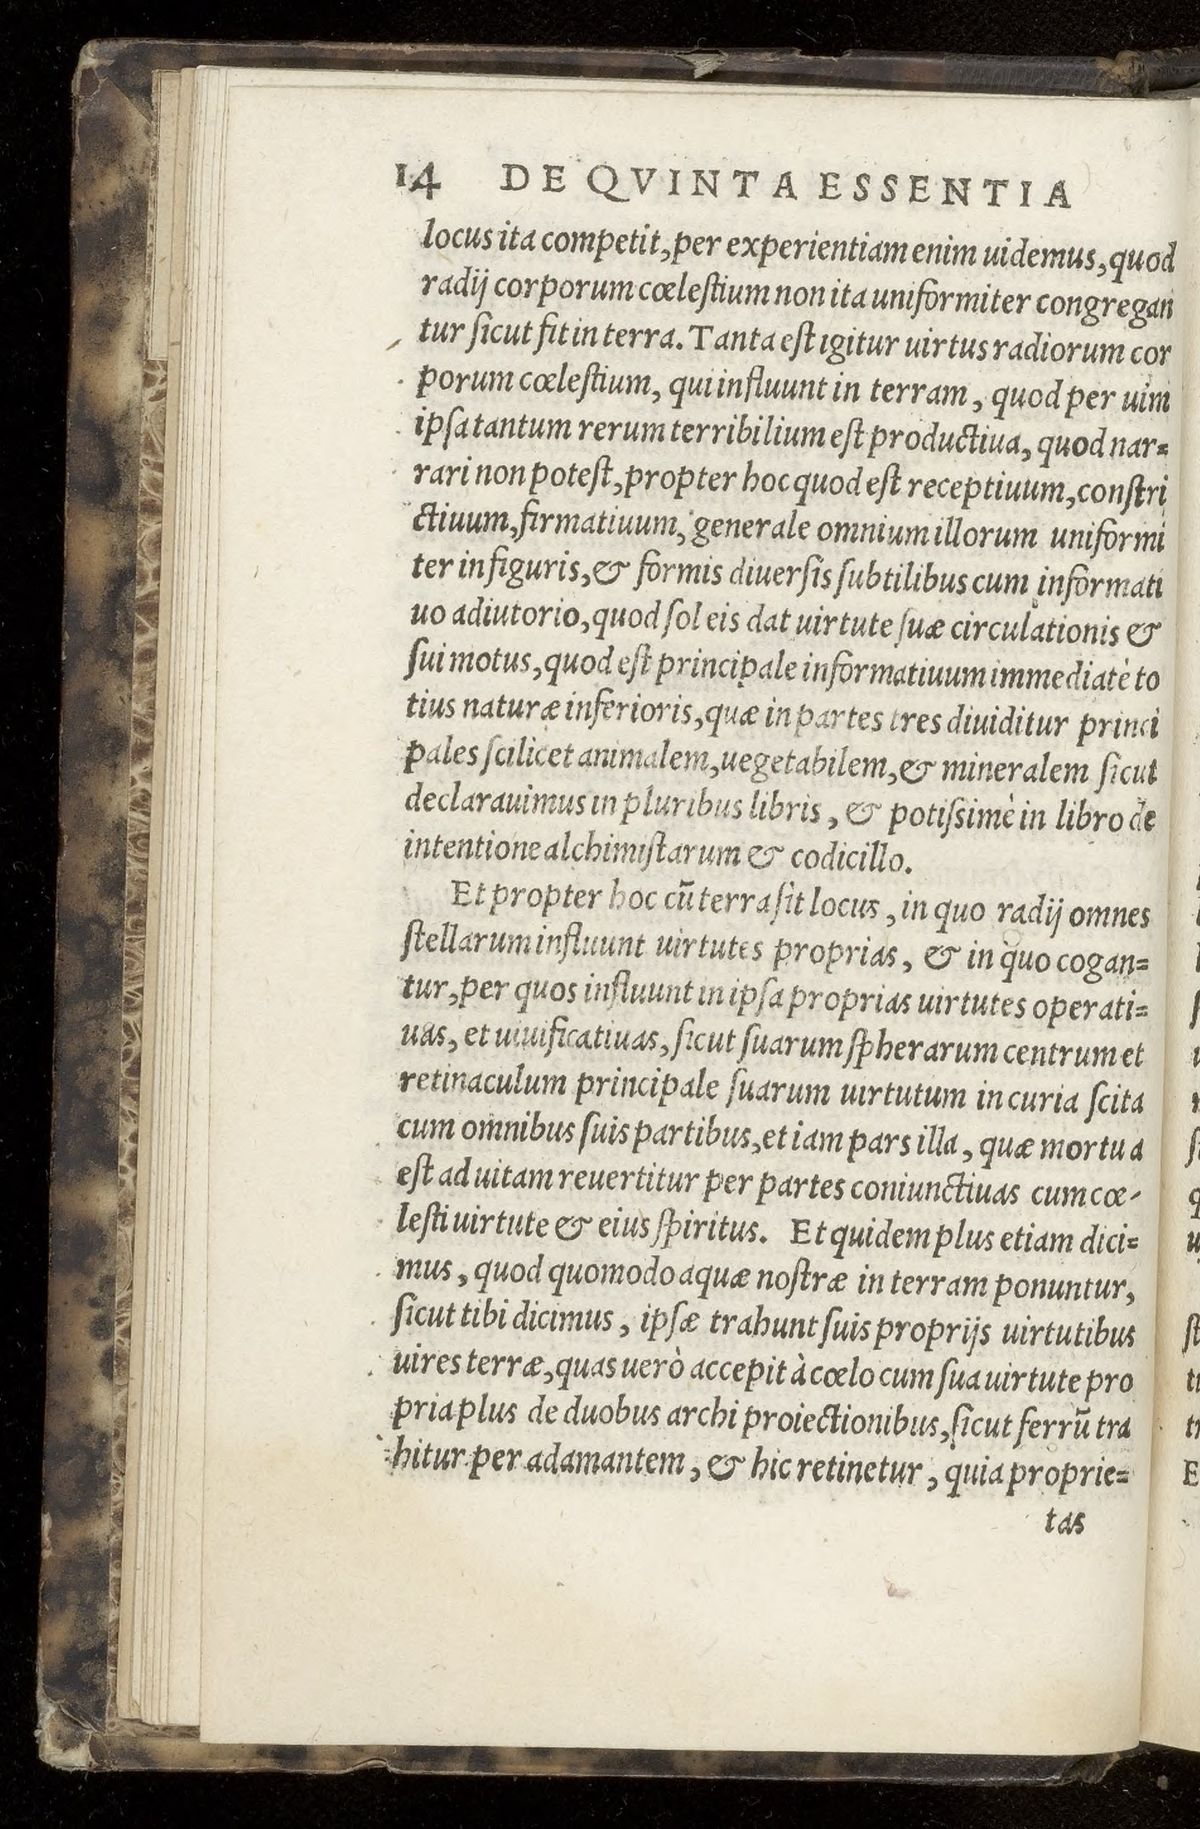 14 DE QVINTA ESSENTIA
locus ita competit, per experientiam enim uidemus, quod
radij corporum cœlestium non ita uniformiter congregan
tur sicut fit in terra. Tanta est igitur uirtus radiorum cor
porum cœlestium, qui influunt in terram, quod per uim
ipsa tantum rerum terribilium est productiua, quod nar=
rari non potest, propter hoc quod est receptiuum, constri
ctiuum, firmatiuum, generale omnium illorum uniformi
ter in figuris, & formis diuersis subtilibus cum informati
uo adiutorio, quod sol eis dat uirtute suæ circulationis &
sui motus, quod est principale informatiuum immediatè to
tius naturæ inferioris, quæ in partes tres diuiditur princi
pales scilicet animalem, uegetabilem, & mineralem sicut
declarauimus in pluribus libris, & potissimè in libro de
intentione alchimistarum & codicillo.
Et propter hoc cū terra sit locus, in quo radij omnes
stellarum influunt uirtutes proprias, & in quo cogan=
tur, per quos influunt in ipsa proprias uirtutes operati=
uas, et uiuificatiuas, sicut suarum spherarum centrum et
retinaculum principale suarum uirtutum in curia scita
cum omnibus suis partibus, etiam pars illa, quæ mortua
est ad uitam reuertitur per partes coniunctiuas cum cœ-
lesti uirtute & eius spiritus. Et quidem plus etiam dici=
mus, quod quomodo aquæ nostræ in terram ponuntur,
sicut tibi dicimus, ipsæ trahunt suis proprijs uirtutibus
uires terræ, quas uerò accepit à cœlo cum sua uirtute pro
pria plus de duobus archi proiectionibus, sicut ferrū tra
hitur per adamantem, & hic retinetur, quia proprie=
tas